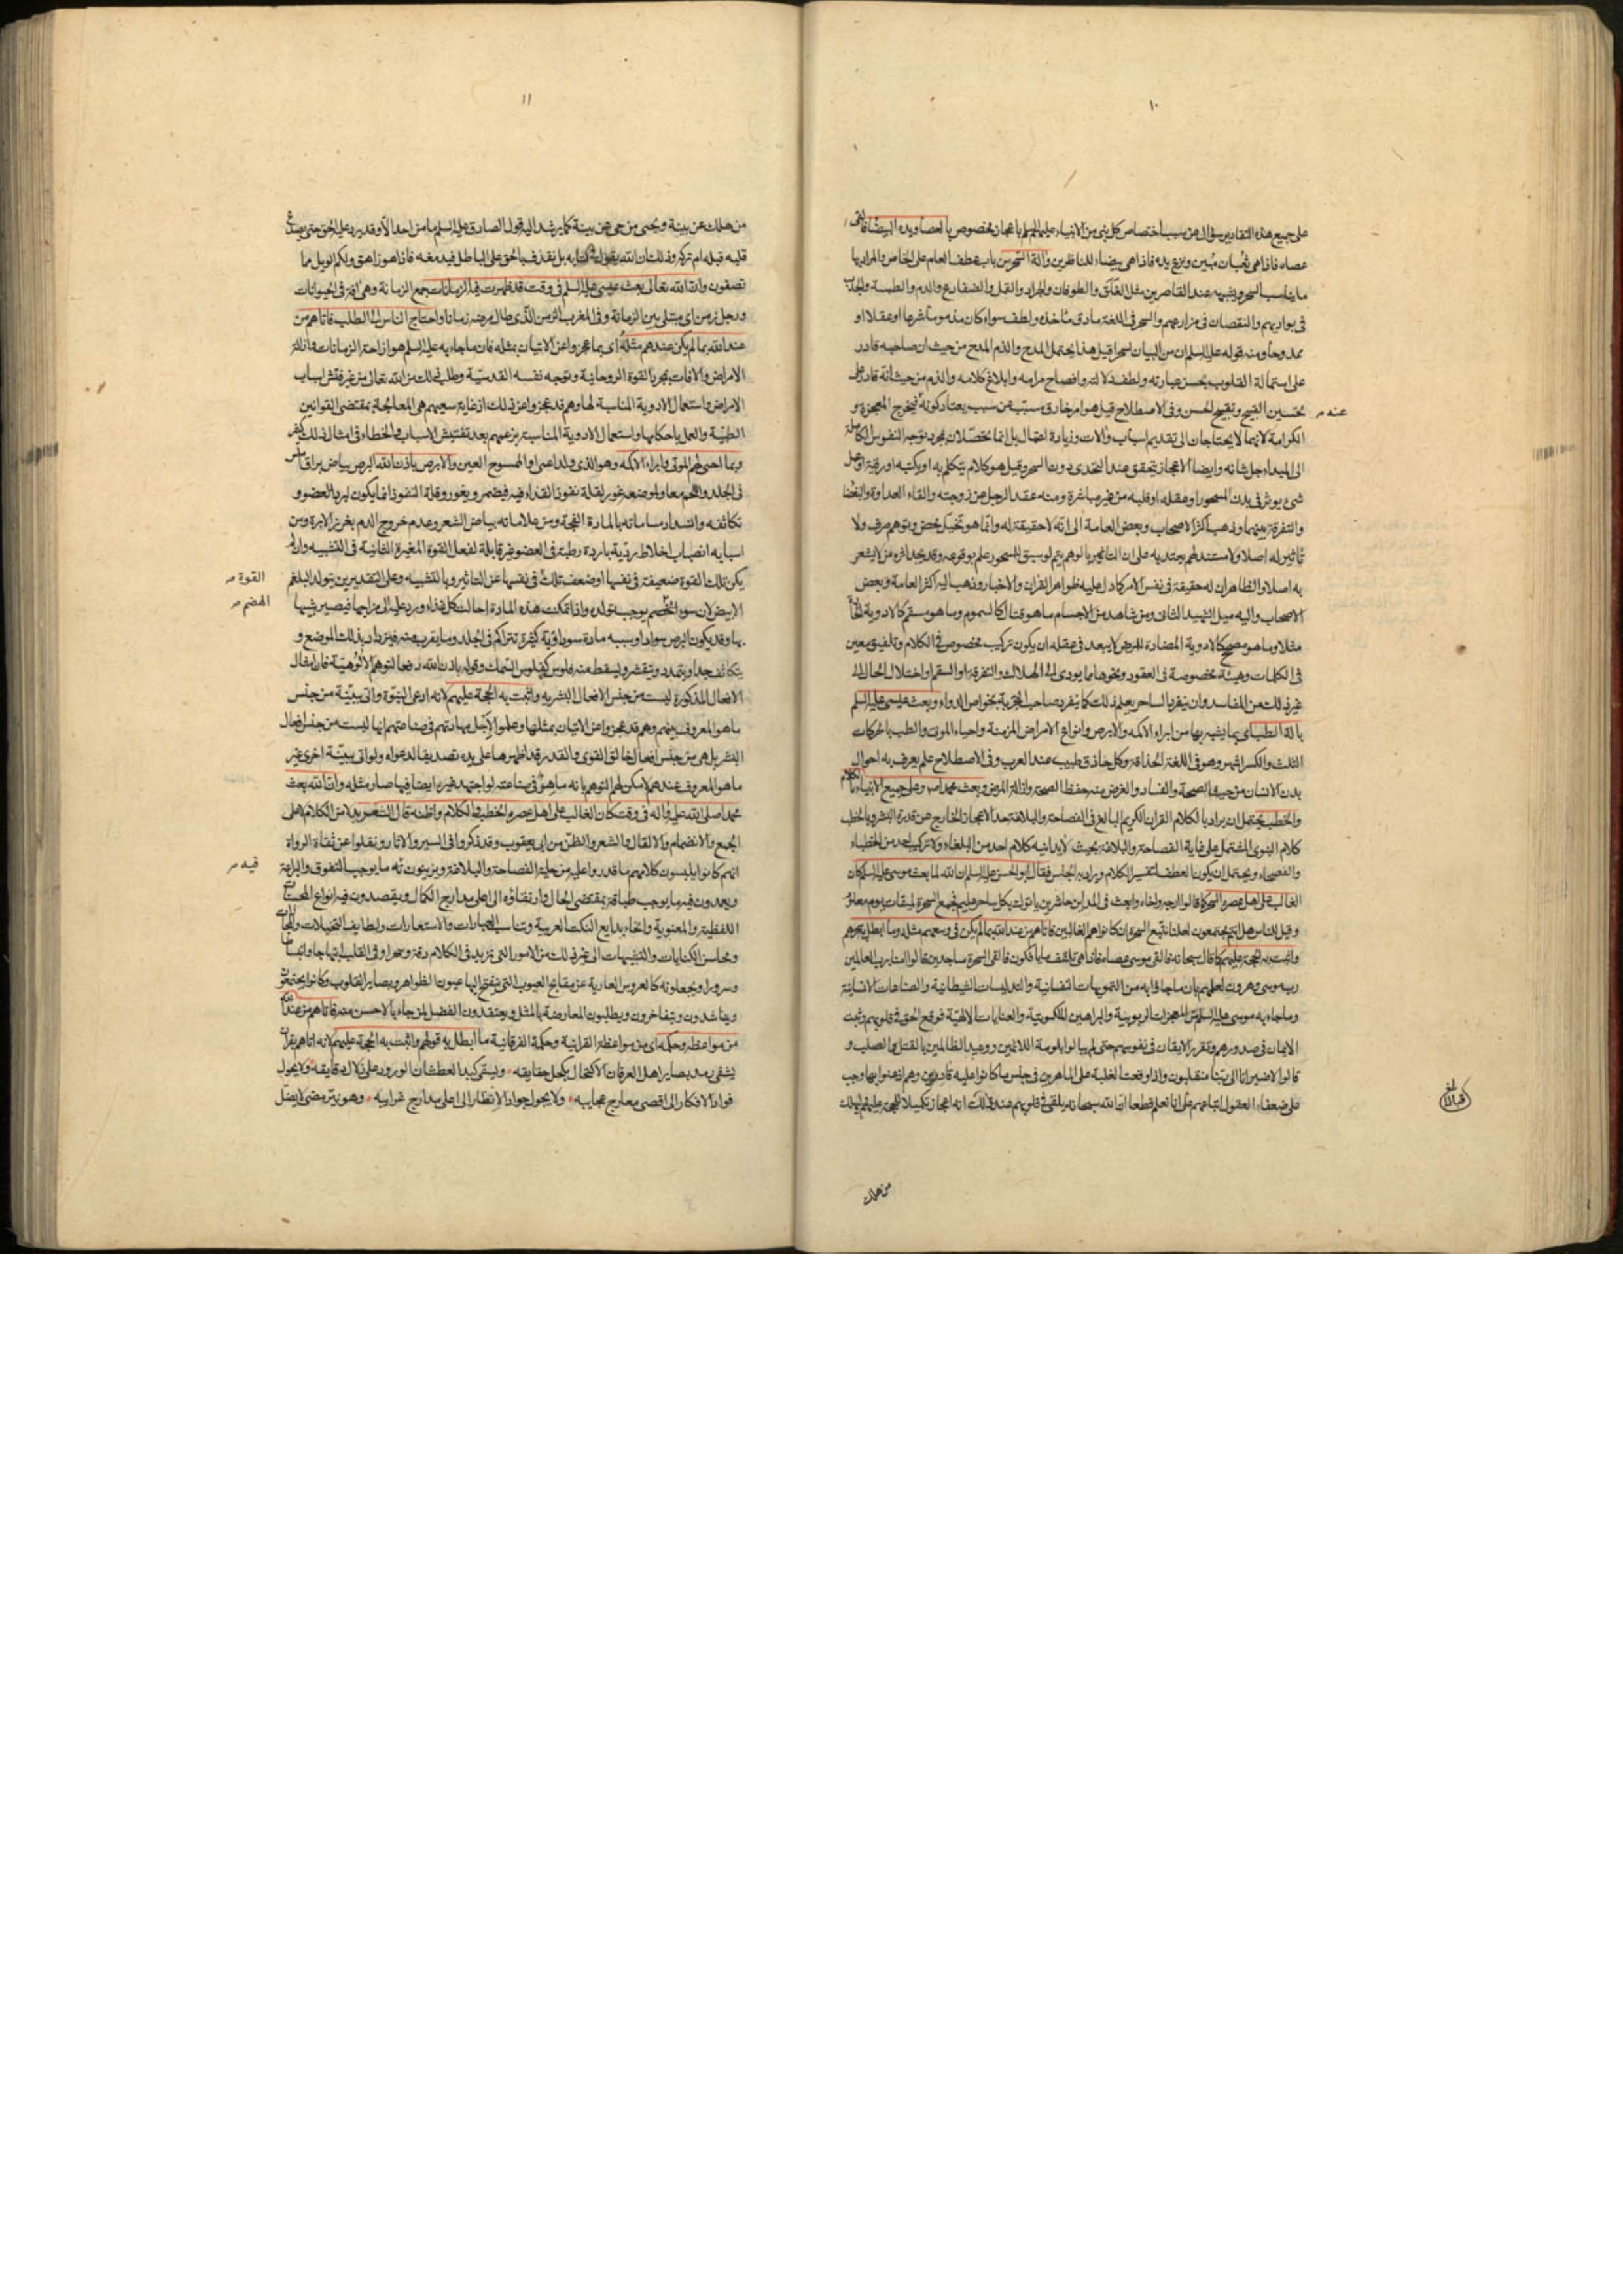 ١٠
على جميع هذه التقادير سؤال عن سبب اختصاص كل نبى من الانبياء عليهم السلم باعجاز مخصوص بالعصا ويده البيضا فالقى
عصاه فاذا هى ثعبان مبين ونزع يده فاذا هى بيضاء للناظرين وآلة السحر من باب عطف العام على الخاص والمراد بها
ما يناسب السحر ويشبهه عند القاصرين مثل الفلق والطوفان والجراد والقمل والضفادع والدم والطمسة والجدب
فى بواديهم والنقصان فى مزارعهم والسحر فى اللغة ما دق ماخذه ولطف سواء كان مذموما شرعا او عقلا او
ممدوحا ومنه قوله عليه السلم ان من البيان لسحرا قيل هذا يحتمل المدح والذم المدح من حيث ان صاحبه قادر
على استمالة القلوب بحسن عبارته ولطف دلالته وافصاح مرامه وابلاغ كلامه والذم من حيث انه قادر على
تحسين القبيح وتقبيح الحسن وفى الاصطلاح قيل هو امر خارق مسبب عن سبب يعتاد كونه فيخرج المعجزة و
عنه
الكرامة لانهما لا يحتاجان الى تقديم اسباب وآلات وزيادة اعتمال بل انما تحصلان بمجرد توجه النفوس الكاملة
الى المبداء جل شانه وايضا الاعجاز يتحقق عند التحدى دون السحر وقيل هو كلام يتكلم به او يكتبه او رقية او عمل
شىء يوثر فى بدن المسحور او عقله او قلبه من غير مباشرة ومنه عقد الرجل عن زوجته والقاء العداوة والبغضا
والتفرقة بينهما وذهب اكثر الاصحاب وبعض العامة الى انه لا حقيقة له وانما هو تخيل محض وتوهم صرف ولا
تاثير له اصلا ولا مستند لهم يعتد به على ان التاثير بالوهم يتم لو سبق للمسحور علم بوقوعه وقد يجد اثره من لا يشعر
به اصلا والظاهر ان له حقيقة فى نفس الامر كما دل عليه ظواهر القران والاخبار وذهب اليه اكثر العامة وبعض
الاصحاب واليه ميل الشهيد الثانى ومن شاهد من الاجسام ما هو قتال كالسموم وما هو مسقم كالادوية الحادة
مثلا وما هو مصحح كالادوية المضادة للمرض لا يبعد فى عقله ان يكون تركيب مخصوص فى الكلام وتلفيق معين
فى الكلمات وهيئة مخصوصة فى العقود ونحوها مما يودى الى الهلاك والتفرقة او السقم او اختلال الحال الى
غير ذلك من المفاسد وان يتفرد الساحر بعلم ذلك كما يتفرد صاحب التجربة بخواص الدواء وبعث عيسى عليه السلم
بالة الطب اى بما يشبه بها من ابراء الاكمه والابرص وانواع الامراض المزمنة واحياء الموتى والطب بالحركات
الثلث والكسر اشهر وهو فى اللغة الحذاقة وكل حاذق طبيب عند العرب وفى الاصطلاح علم يعرف به احوال
بدن الانسان من حيث الصحة والفساد والغرض منه حفظ الصحة وازالة المرض وبعث محمدا وعلى جميع الانبياء بالكلام
والخطب يحتمل ان يراد بالكلام القران الكريم البالغ فى الفصاحة والبلاغة حد الاعجاز الخارج عن قدرة البشر وبالخطب
كلام النبوى المشتمل على غاية الفصاحة والبلاغة بحيث لا يدانيه كلام احد من البلغاء ولا تركيب احد من الخطباء
والفصحاء ويحتمل ان يكون العطف لتفسير الكلام ويراد به الجنس فقال ابو الحسن عليه السلم ان الله لما بعث موسى عليه السلم كان
الغالب على اهل عصره السحر كما قالوا ارجه واخاه وابعث فى المداين حاشرين ياتوك بكل سحار عليم فجمع السحرة لميقات يوم معلوم
وقيل للناس هل انتم مجتمعون لعلنا نتبع السحرة ان كانوا هم الغالبين فاتاهم من عند الله بما لم يكن فى وسعهم مثله وما ابطل به سحرهم
واثبت به الحجة عليهم كما قال سبحانه فالقى موسى عصاه فاذا هى تلقف ما يافكون فالقى السحرة ساجدين قالوا امنا برب العالمين
رب موسى وهرون لعلمهم بان ما جاوا به من التمويهات النفسانية والتدليسات الشيطانية والصناعات الانسانية
وما جاء به موسى عليه السلم من المعجزات الربوبية والبراهين الملكوتية والعنايات الالهية فوقع الحق فى قلوبهم وثبت
الايمان فى صدورهم وتقرر الايقان فى نفوسهم حتى لم يبالوا بلومة اللائمين ووعيد الظالمين بالقتل والصلب و
قالوا لا ضير انا الى ربنا منقلبون واذا وقعت الغلبة على الماهرين فى جنس ما كانوا عليه قادرين وهم اذعنوا بها وجب
على ضعفاء العقول اتباعهم على انا نعلم قطعا ان الله سبحانه يلقى فى قلوبهم عند ذلك انه اعجاز تكميلا للحجة عليهم ليهلك
من هلك
١١
من هلك عن بينة ويحيى من حى عن بينة كما يرشد اليه قول الصادق عليه السلم ما من احد الا وقد يرد عليه الحق حتى يصدع
قلبه قبله ام تركه وذلك ان الله يقول فى كتابه بل نقذف بالحق على الباطل فيدمغه فاذا هو زاهق ولكم الويل مما
تصفون وان الله تعالى بعث عيسى عليه السلم فى وقت قد ظهرت فيه الزمانات جمع الزمانة وهى افة فى الحيوانات
ورجل زمن اى مبتلى بين الزمانة وفى المغرب الزمن الذى طال مرضه زمانا واحتاج الناس الى الطب فاتاهم من
عند الله بما لم يكن عندهم مثله اى بما عجزوا عن الاتيان بمثله فان ما جاء به عليه السلم هو ازاحة الزمانات وازالة
الامراض والافات بمجرد القوة الروحانية وتوجه نفسه القدسية وطلب ذلك من الله تعالى من غير تفتيش اسباب
الامراض واستعمال الادوية المناسبة لها وهم قد عجزوا عن ذلك اذ غاية سعيهم هى المعالجة بمقتضى القوانين
الطبية والعمل باحكامها واستعمال الادوية المناسبة بزعمهم بعد تفتيش الاسباب والخطاء فى امثال ذلك كثير
وبما احيى لهم الموتى وابراء الاكمه وهو الذى ولد اعمى او الممسوح العين والابرص باذن الله البرص بياض براق املس
فى الجلد واللحم معا ولموضعه غور لقلة نفوذ الغذاء فيه فيضمر ويغور وقلة النفوذ انما يكون لبرد العضو و
تكاثفه وانسداد مساماته بالمادة الفجة ومن علاماته بياض الشعر وعدم خروج الدم بغرز الابرة ومن
اسبابه انصباب اخلاط ردية باردة رطبة فى العضو غير قابلة لفعل القوة المغيرة الثانية فى التشبيه وان لم
يكن تلك القوة ضعيفة فى نفسها او ضعف تلك فى نفسها عن التاثير وبالتشبيه وعلى التقديرين يتولد البلغم
القوة
الابيض لان سوء الهضم يوجب تولده واذا تمكنت هذه المادة احالت كل غذاء ورد عليه الى مزاجها فيصير شبيها
الهضم
بها وقد يكون البرص سوادا وسببه مادة سوداوية كثيرة تتراكم فى الجلد وما يقرب منه فيزداد بذلك الموضع و
يتكاثف جدا ويتمدد ويتقشر ويسقط منه فلوس كفلوس السمك وقوله باذن الله دفعا لتوهم الالوهية فان امثال
الافعال المذكورة ليست من جنس الافعال البشرية واثبت به الحجة عليهم لانه ادعى النبوة واتى ببينة من جنس
ما هو المعروف بينهم وهم قد عجزوا عن الاتيان بمثلها وعلموا لاجل مهارتهم فى صناعتهم انها ليست من جنس افعال
البشر بل هى من جنس افعال خالق القوى والقدر قد اظهرها على يده تصديقا لدعواه ولو اتى ببينة اخرى غير
ما هو المعروف عندهم لامكن لهم التوهم بانه ماهر فى صناعته لو اجتهد غيره ايضا فيها صار مثله وان الله بعث
محمدا صلى الله عليه وآله فى وقت كان الغالب على اهل عصره الخطب والكلام واظنه قال الشعر بدلا من الكلام اعلى
الجمع والانضمام والا لقال والشعر والظن من ابى يعقوب وقد ذكروا فى السير والاثار ونقلوا عن ثقاة الرواة
انهم كانوا يلبسون كلامهم ما قدروا عليه من حلية الفصاحة والبلاغة ويزينونه ما يوجب التفوق والبراعة
فيه
ويعدون فيه ما يوجب طباقه بمقتضى الحال وارتقاؤه الى اعلى مدارج الكمال ويقصدون فيه انواع المحسنات
اللفظية والمعنوية وانحاء بدايع النكت العربية وتناسب العبارات والاستعارات ولطايف التخيلات والمجازات
ومحاسن الكنايات والتشبيهات الى غير ذلك من الامور التى تزيد فى الكلام رقة وسحرا وفى القلب ابتهاجا وانبساطا
وسرورا ويجعلونه كالعروس العارية عن مقابح العيوب التى تفتح اليها عيون الظواهر وبصاير القلوب وكانوا يجتمعون
ويتناشدون ويتفاخرون ويطلبون المعارضة بالمثل ويعتقدون الفضل لمن جاء بالاحسن منه فاتاهم من عند الله
من مواعظه وحكمه اى من مواعظه القرانية وحكمه الفرقانية ما ابطل به قولهم واثبت به الحجة عليهم لانه اتاهم بقران
يشفى رمد بصاير اهل العرفان الاكتحال بكحل حقايقه وليسقى كبد العطشان الورود على زلال دقايقه ولا يحول
جواد الافكار الى اقصى معارج عجايبه ولا يجول جواد الانظار الى اعلى مدارج غرايبه وهو نير مضىء لا يضل